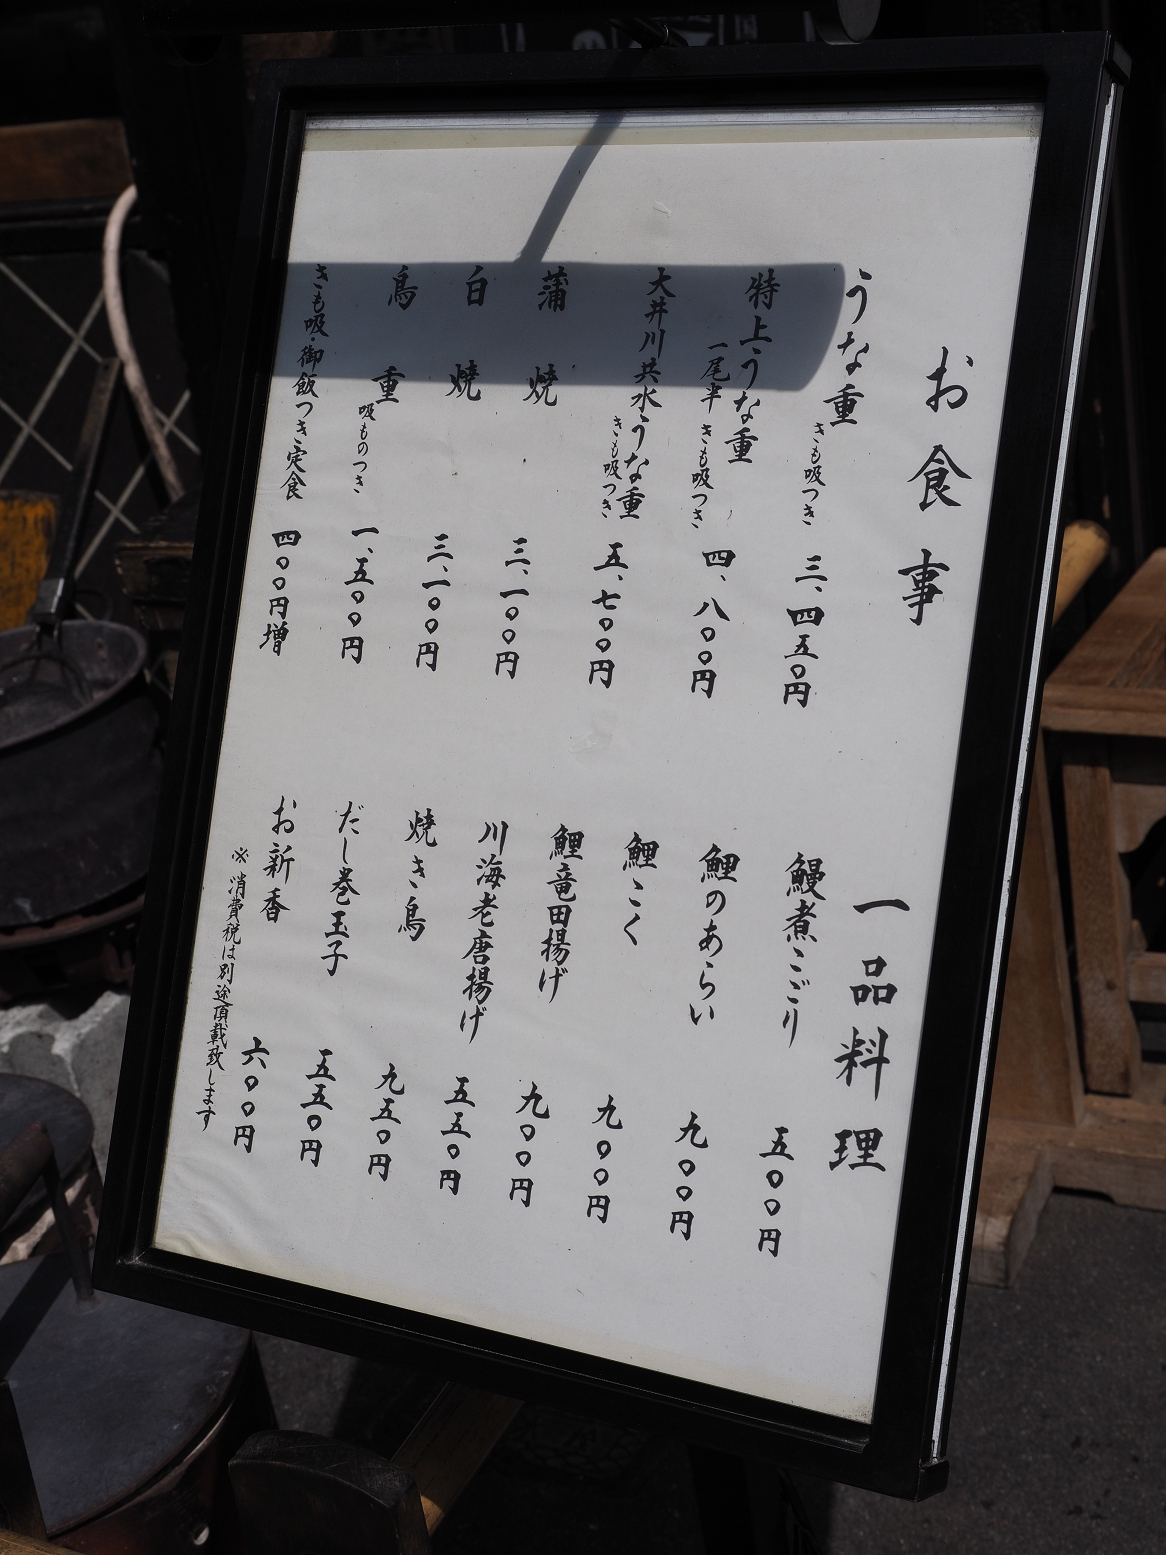 お食事
うな重 きも吸つき 三、四五〇円
特上うな重 一尾半 きも吸つき 四、八〇〇円
大井川共水うな重 きも吸つき 五、七〇〇円
蒲焼 三、一〇〇円
白焼 三、一〇〇円
鳥重 吸ものつき 一、五〇〇円
きも吸・御飯つき定食 四〇〇円増
一品料理
鰻煮こごり 五〇〇円
鯉のあらい 九〇〇円
鯉こく 九〇〇円
鯉竜田揚げ 九〇〇円
川海老唐揚げ 五五〇円
焼き鳥 九五〇円
だし巻玉子 五五〇円
お新香 六〇〇円
※消費税は別途頂戴致します